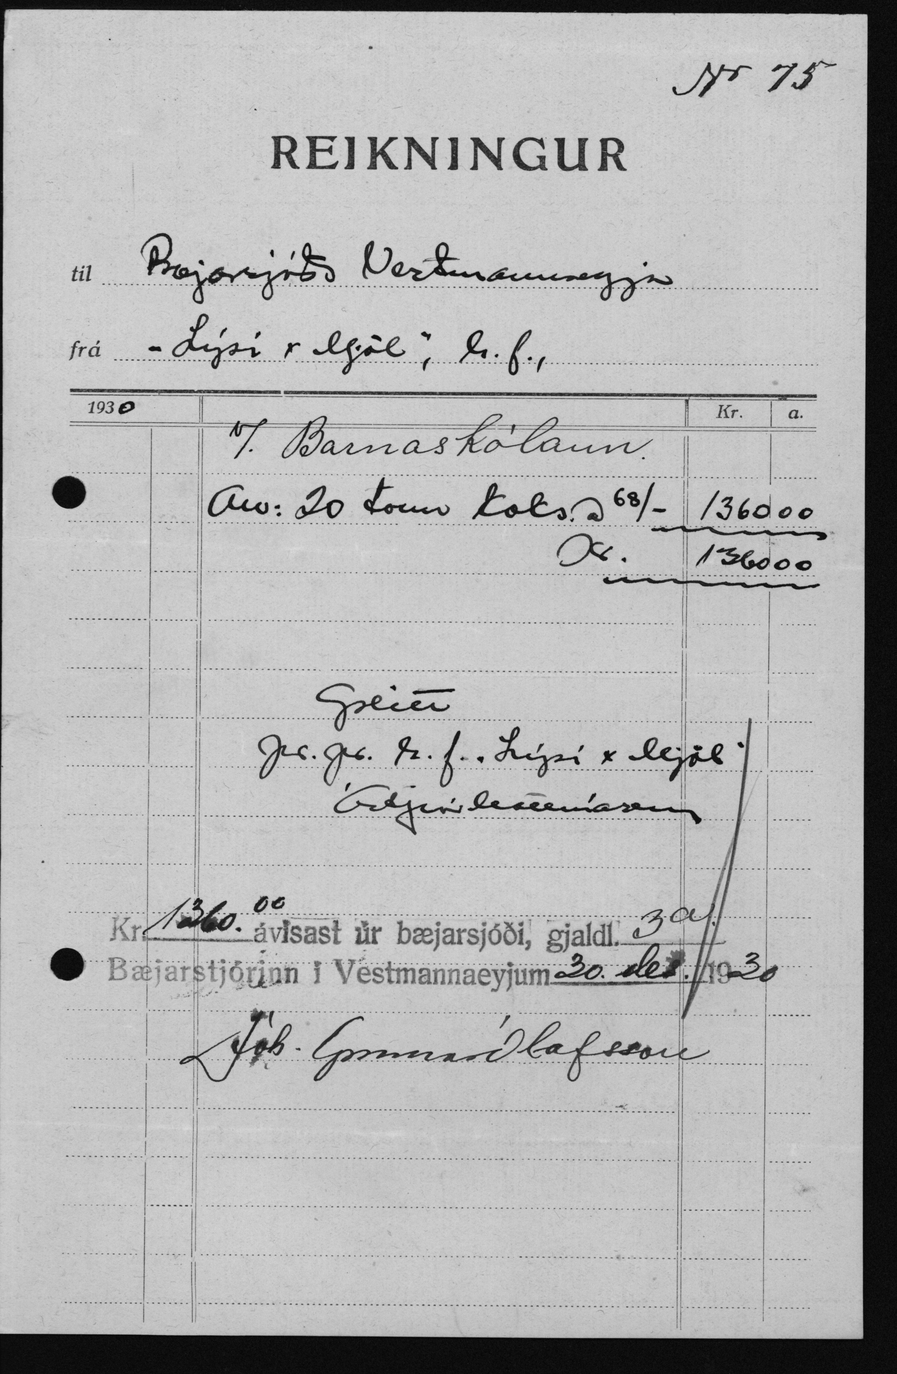 Nr 75
REIKNINGUR
til Bæjarsjóðs Vestmannaeyja
frá „Lýsi & Mjöl", h.f.,
1930 Kr. a.
v/. Barnaskólann.
20 tonn Koks. à 68/- 1360 00
Kr. 1360 00
Greitt
pr. pr. h.f. „Lýsi & Mjöl"
Kr. 1360.00 ávísast úr bæjarsjóði, gjaldl. 3a/.
Bæjarstjórinn í Vestmannaeyjum 30. des. 1930
Jóh. Gunnar Ólafsson